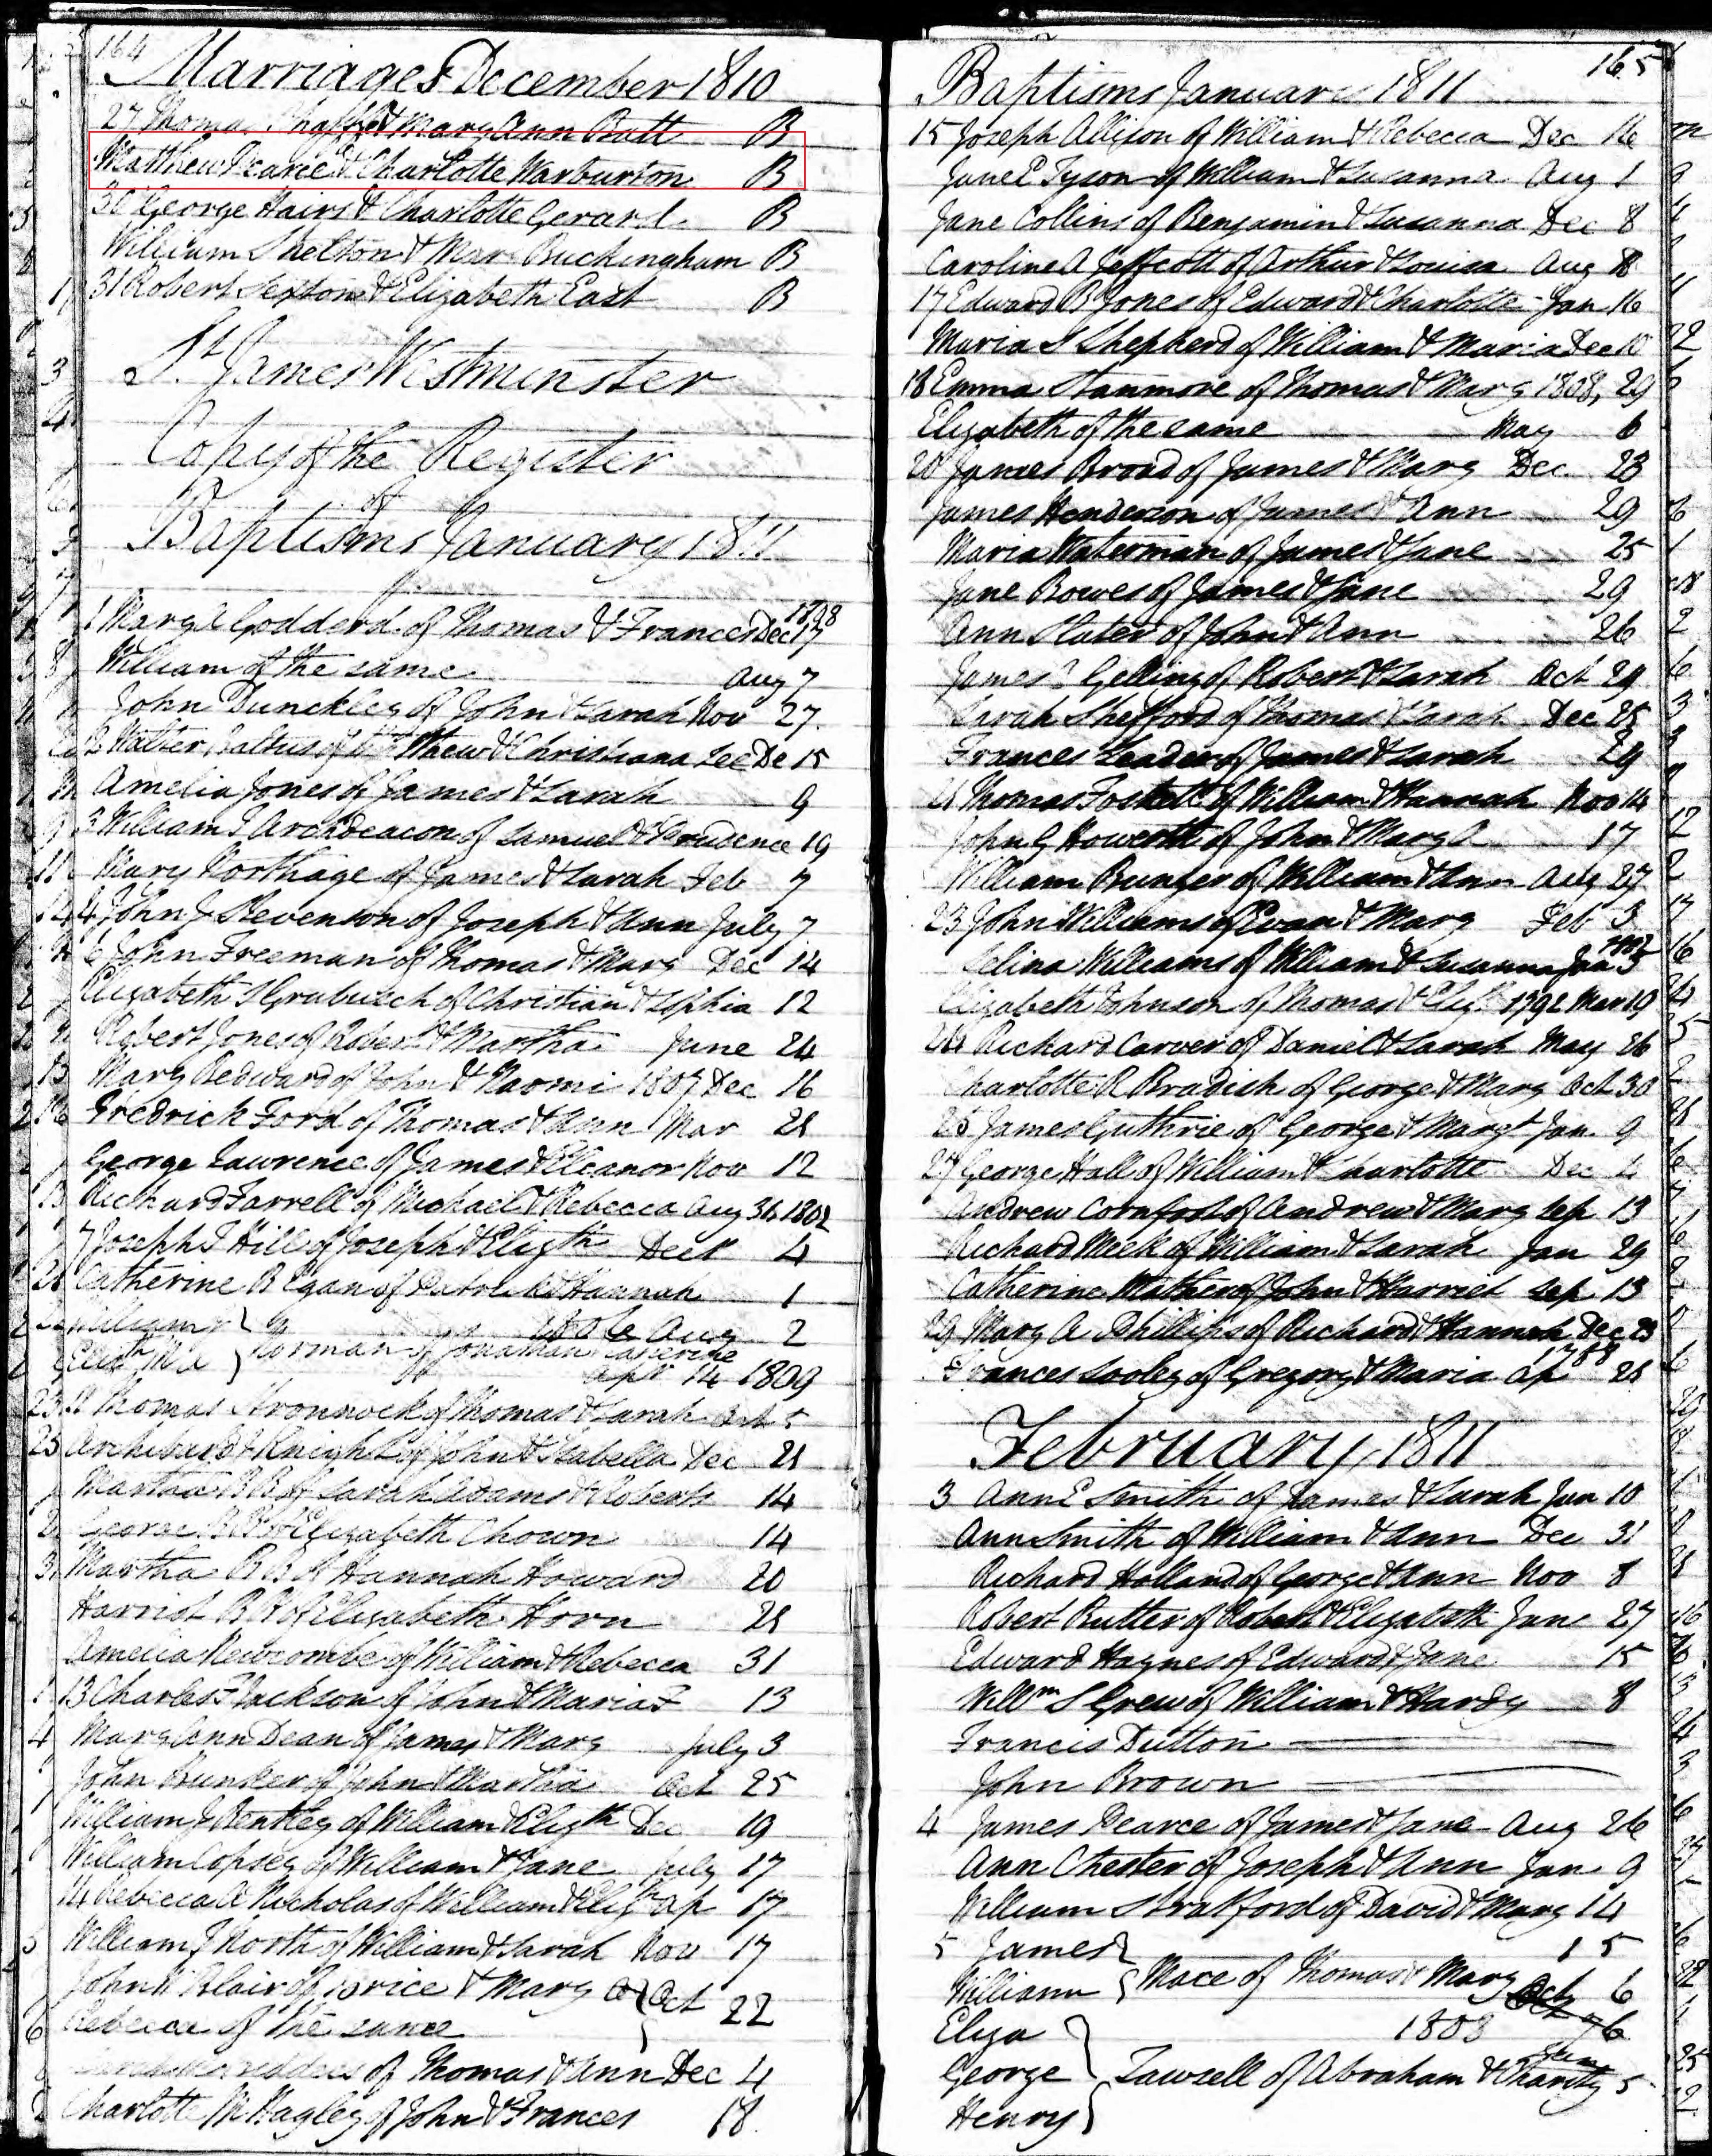 164
Marriages December 1810
27 Thomas & Mary Ann Butt B
Matthew Pearce & Charlotte Warburton B
30 George Hairs & Charlotte Gerard B
William Shelton & Mary Buckingham B
31 Robert Sexton & Elizabeth East B
St James Westminster
Copy of the Register
of
Baptisms January 1811
1798
1 Mary Godderd of Thomas & Frances Dec 17
William of the same Aug 7
John Dunckley of John & Sarah Nov 27
Walter of & Christiana Lee De 15
Amelia Jones of James & Sarah 9
3 William J Archdeacon of Samuel & Prudence 19
Mary Northage of James & Sarah Feb 7
4 John J Stevenson of Joseph & Ann July 7
6 John Freeman of Thomas & Mary Dec 14
Elizabeth S of Christian & Sophia 12
Robert Jones of Robert & Martha June 24
Mary Bedward of John & Naomi 1807 Dec 16
Fredrick Ford of Thomas & Ann Mar 21
George Lawrence of James & Eleanor Nov 12
Richard Farrell of Michael & Rebecca Aug 31, 1802
7 Joseph J Hill of Joseph & Elizth Decr 4
Catherine B Egan of Patrick & Hannah 1
William Aug 2
Norman of Jonathan Catherine
Elizth M A Apl 14 1809
Thomas of Thomas & Sarah Oct 5
Archibard J Knight of John & Isabella Dec 21
Martha B B of Sarah Adams & Roberts 14
George B B of Elizabeth Chown 14
Martha B B of Hannah Howard 20
Harriot B B of Elizabeth Horn 21
Amelia Newcombe of William & Rebecca 31
13 Charles F Jackson of John & Maria F 13
Mary Ann Dean of James & Mary July 3
John Bunker of John & Martha Oct 25
William J Bentley of William & Elizth Dec 19
William Copsey of William & Jane July 17
14 Rebecca A Nicholas of William & Elizth Ap 17
William J North of William & Sarah Nov 17
John W Blair of Price & Mary Oct 22
Rebecca of the same
of Thomas & Ann Dec 4
Charlotte M Hagley of John & Frances 18
165
Baptisms January 1811
15 Joseph Allison of William & Rebecca Dec 16
Jane E Tyson of William & Susanna Aug 1
Jane Collins of Benjamin & Susanna Dec 8
Caroline A Jeffcott of Arthur & Louisa Aug 18
17 Edward B Jones of Edward & Charlotte Jan 16
Maria S Shepherd of William & Maria Dec 10
18 Emma Stanmore of Thomas & Mary 1808, 29
Elizabeth of the same May 6
20 James Broad of James & Mary Dec 23
James Henderson of James & Ann 29
Maria Waterman of James & Jane 25
Jane Bowes of James & Jane 29
Ann Slater of John & Ann 26
James Gelling of Robert & Sarah Oct 29
Sarah Shefford of Thomas & Sarah Dec 25
Frances Leader of James & Sarah 29
21 Thomas Foskett of William & Hannah Nov 14
John G Howorth of John & Mary A 17
William Bunger of William & Ann Aug 27
23 John Williams of Evan & Mary Feb 3
Selina Williams of William & Susanna Jan 5
Elizabeth Johnson of Thomas & Elizth 1792 Mar 19
24 Richard Carver of Daniel & Sarah May 26
Charlotte R Bradish of George & Mary Oct 30
25 James Guthrie of George & Margt Jan 9
27 George Hall of William & Charlotte Dec 4
Andrew Cornfoot of Andrew & Mary Sep 13
Richard Meek of William & Sarah Jan 29
Catherine Mather of John & Harriet Sep 13
29 Mary A Phillips of Richard & Hannah Dec 23
1788
Frances Sooley of Gregory & Maria Ap 21
February 1811
3 Ann E Smith of James & Sarah Jan 10
Ann Smith of William & Ann Dec 31
Richard Holland of George & Ann Nov 8
Robert Butler of Robert & Elizabeth June 27
Edward Haynes of Edward & Jane 15
Willm S Grew of William & Hardy 8
Francis Dutton
John Brown
4 James Pearce of James & Jane Aug 26
Ann Chester of Joseph & Ann Jan 9
William Stratford of David & Mary 14
5 James 15
William Mace of Thomas & Mary Oct 6
Eliza 1803 26
George Tawsell of Abraham & Charity 5
Henry